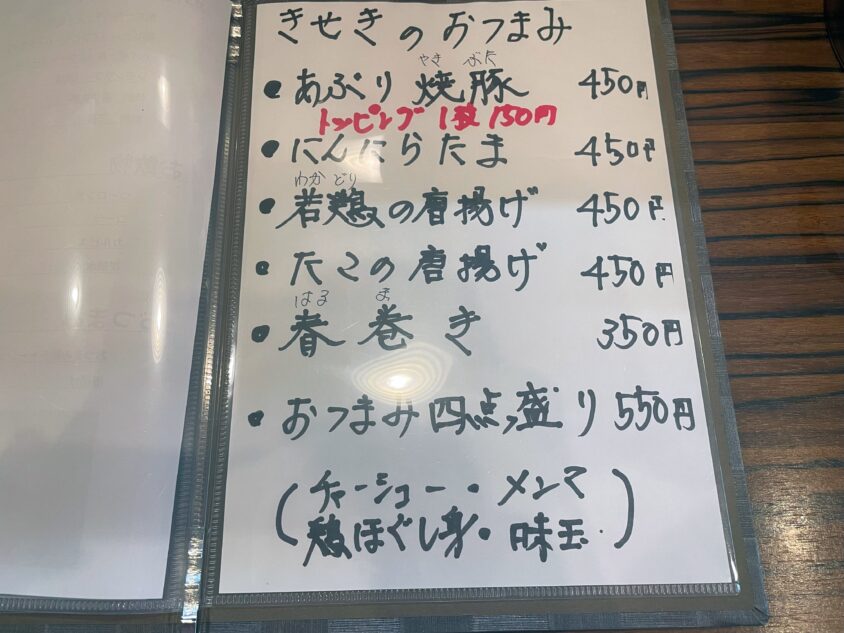 きせきのおつまみ
やき ぶた
・あぶり焼豚 450円
トッピング 1枚 150円
・にんにらたま 450円
わか どり
・若鶏の唐揚げ 450円
・たこの唐揚げ 450円
はる ま
・春巻き 350円
・おつまみ四点盛り 550円
(チャーシュー・メンマ
鶏ほぐし身・味玉)